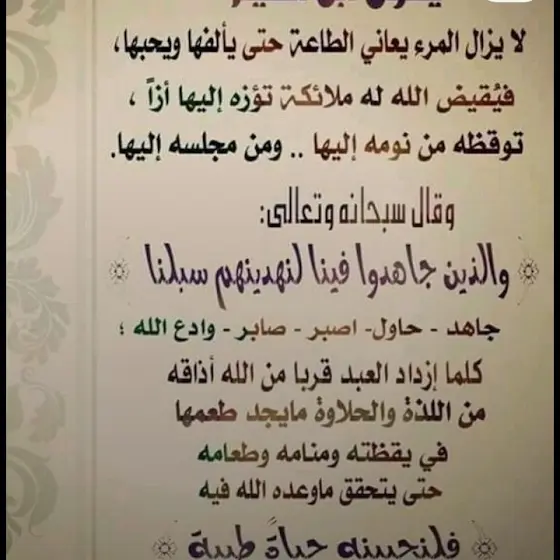 لا يزال المرء يعاني الطاعة حتى يألفها ويحبها،
فيُقيض الله له ملائكة تؤزه إليها أزاً ،
توقظه من نومه إليها .. ومن مجلسه إليها.
وقال سبحانه وتعالى:
والذين جاهدوا فينا لنهدينهم سبلنا
جاهد - حاول- اصبر - صابر - وادع الله ؛
كلما إزداد العبد قربا من الله أذاقه
من اللذة والحلاوة مايجد طعمها
في يقظته ومنامه وطعامه
حتى يتحقق ماوعده الله فيه
فلنحيينه حياةً طيبة